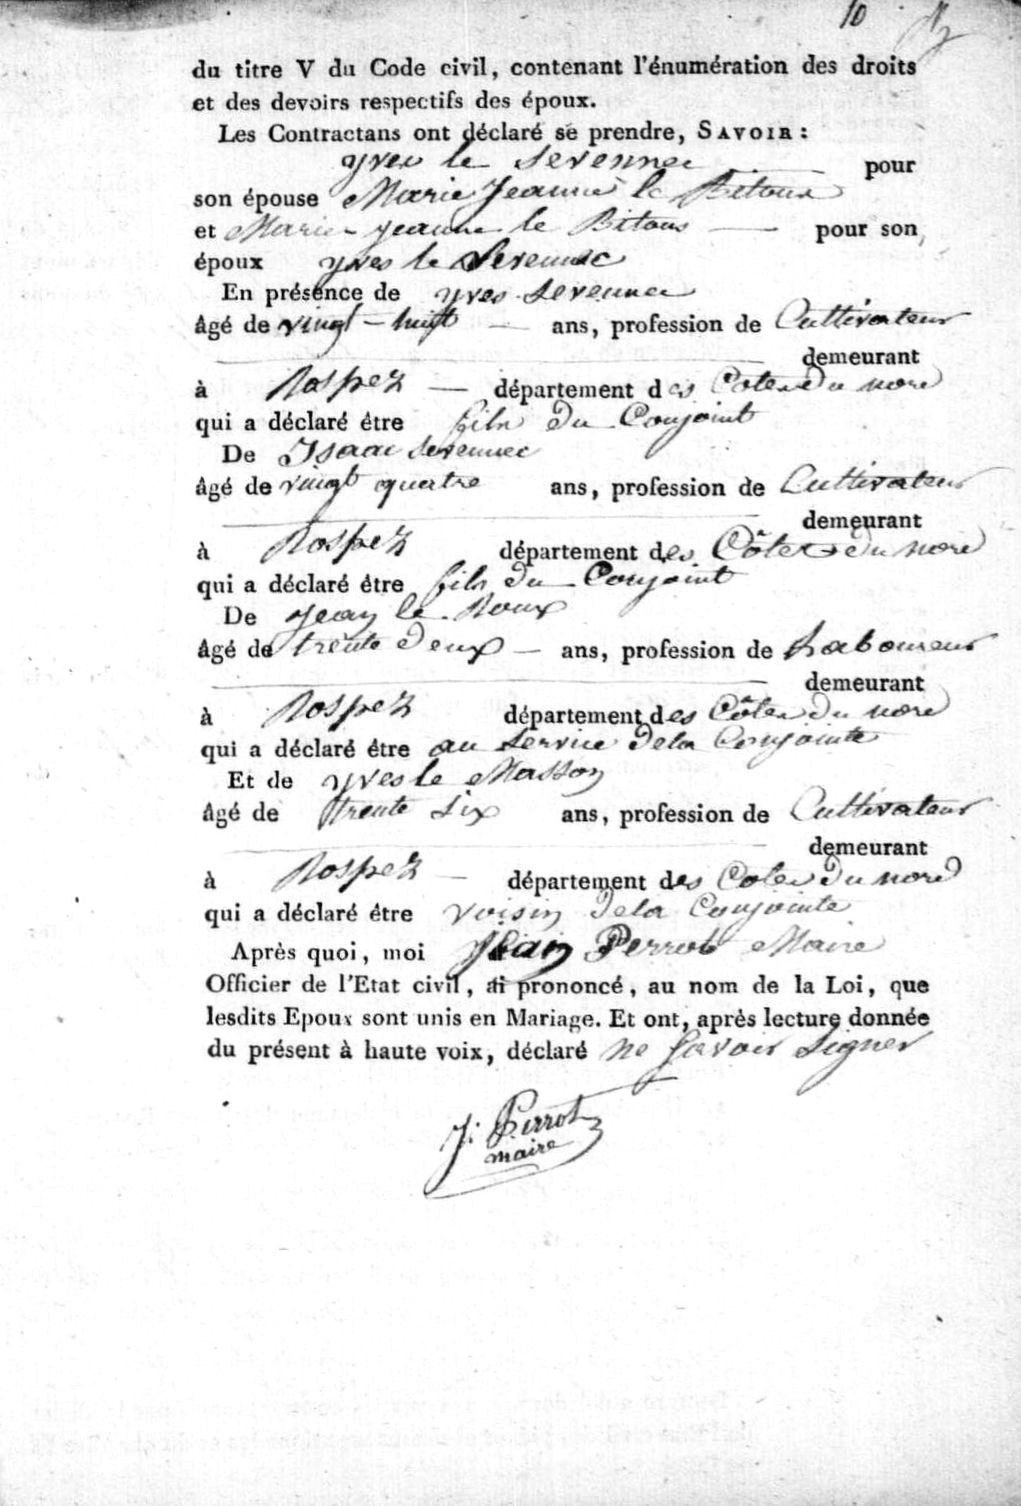 10
du titre V du Code civil, contenant l'énumération des droits
et des devoirs respectifs des époux.
Les Contractans ont déclaré se prendre, SAVOIR :
yves le Sevennec pour
son épouse Marie Jeanne le Bitoux
et Marie-Jeanne le Bitous — pour son
époux yves le Sevennec
En présence de yves Sevennec
âgé de vingt-huit — ans, profession de Cultivateur
demeurant
à Rospez — département des Cotes du nord
qui a déclaré être fils du Conjoint
De Isaac Sevennec
âgé de vingt quatre ans, profession de Cultivateur
demeurant
à Rospez département des Côtes du nord
qui a déclaré être fils du Conjoint
De Jean le Roux
âgé de trente deux — ans, profession de Laboureur
demeurant
à Rospez département des Côtes du nord
qui a déclaré être au service dela Conjointe
Et de yves le Masson
âgé de trente six ans, profession de Cultivateur
demeurant
à Rospez — département des Cotes du nord
qui a déclaré être voisin dela Conjointe
Après quoi, moi Jean Perrot Maire
Officier de l'Etat civil, ai prononcé, au nom de la Loi, que
lesdits Epoux sont unis en Mariage. Et ont, après lecture donnée
du présent à haute voix, déclaré ne savoir signer
J: Perrot
maire